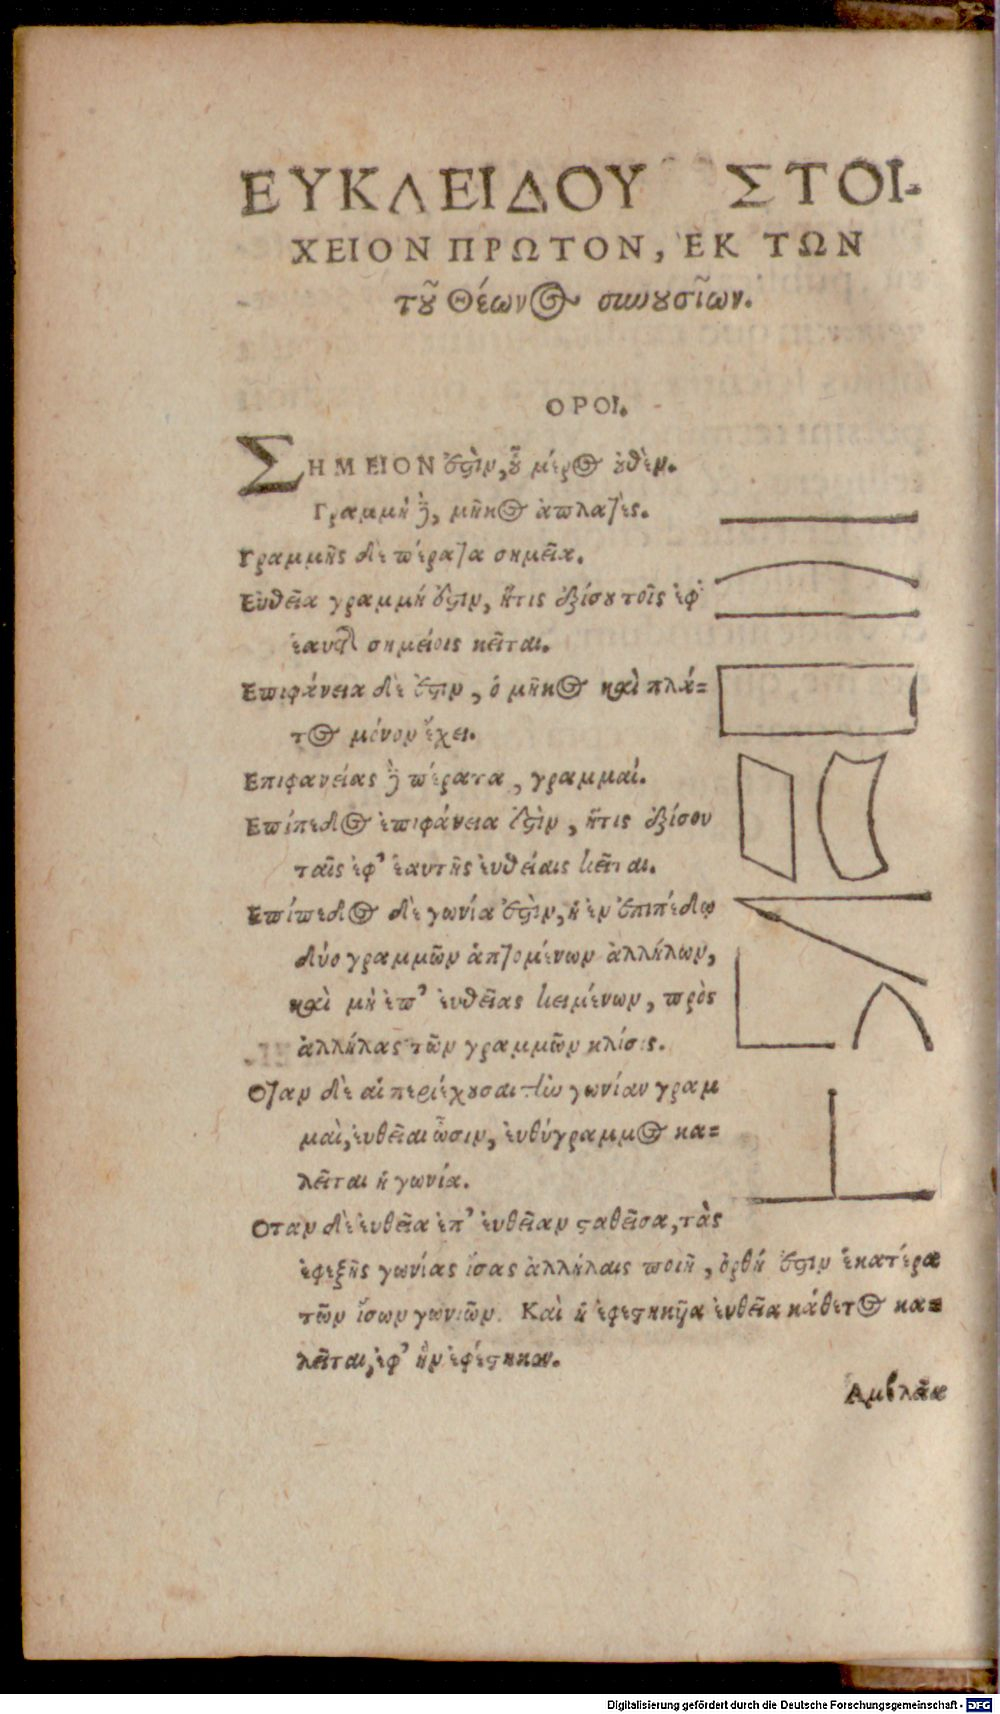 ΕΥΚΛΕΙΔΟΥ ΣΤΟΙ-
ΧΕΙΟΝ ΠΡΩΤΟΝ, ἘΚ ΤΩΝ
τȣ͂ Θέωνος συνȣσιῶν.
ΟΡΟΙ.
ΣΗΜΕΙΟΝ ἐστὶν, ȣ̔͂ μέρος ȣ̓θὲν.
Γραμμὴ δὲ, μῆκος ἀπλατὲς.
Γραμμῆς δὲ πέρατα σημεῖα.
Εὐθεῖα γραμμή ἐστιν, ἥτις ἐξίσȣ τοῖς ἐφ'
ἑαυτῆς σημείοις κεῖται.
Επιφάνεια δὲ ἐστιν, ὁ μῆκος καὶ πλά=
τος μόνον ἔχει.
Επιφανείας δὲ πέρατα, γραμμαί.
Επίπεδος ἐπιφάνεια ἐστὶν, ἥτις ἐξίσου
ταῖς ἐφ' ἑαυτῆς ἐυθείαις κεῖται.
Επίπεδος δὲ γωνία ἐστὶν, ἡ ἐν ἐπιπέδῳ
δύο γραμμῶν ἁπτομένων ἀλλήλων,
καὶ μὴ ἐπ' ἐυθείας κειμένων, πρὸς
ἀλλήλας τῶν γραμμῶν κλίσις.
Οταν δὲ αἱ περιέχȣσαι τὴν γωνίαν γραμ
μαὶ, ἐυθεῖαι ὦσιν, ἐυθύγραμμος κα=
λεῖται ἡ γωνία.
Οταν δὲ ἐυθεῖα ἐπ' ἐυθεῖαν σταθεῖσα, τὰς
ἐφεξῆς γωνίας ἴσας ἀλλήλαις ποιῇ, ὀρθή ἐστιν ἑκατέρα
τῶν ἴσων γωνιῶν. Καὶ ἡ ἐφεστηκῦα ἐυθεῖα κάθετος κα=
λεῖται, ἐφ' ἣν ἐφέστηκεν.
Αμβλεῖα
Digitalisierung gefördert durch die Deutsche Forschungsgemeinschaft - DFG